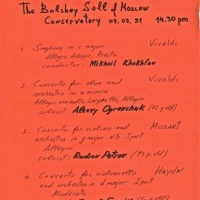 The Bolshoy Sall of Moscow
Conservatory 03.03.91 14.30 pm
1. Symphony in c major Vivaldi
Allegro, Adagio, Presto
conductor: Mikhail Khokhlov
2. Concerto for oboe and Vivaldi
orchestra in a minore
Allegro non molto, Larghetto, Allegro
soloist Alexey Ogrenchuk
3. Concerto for violino and Mozart
orchestra in g major KV 3part
Allegro
soloist Rodion Petrov
4. Concerto for violoncello Haydn
and orchestra in d major 3part
Moderato